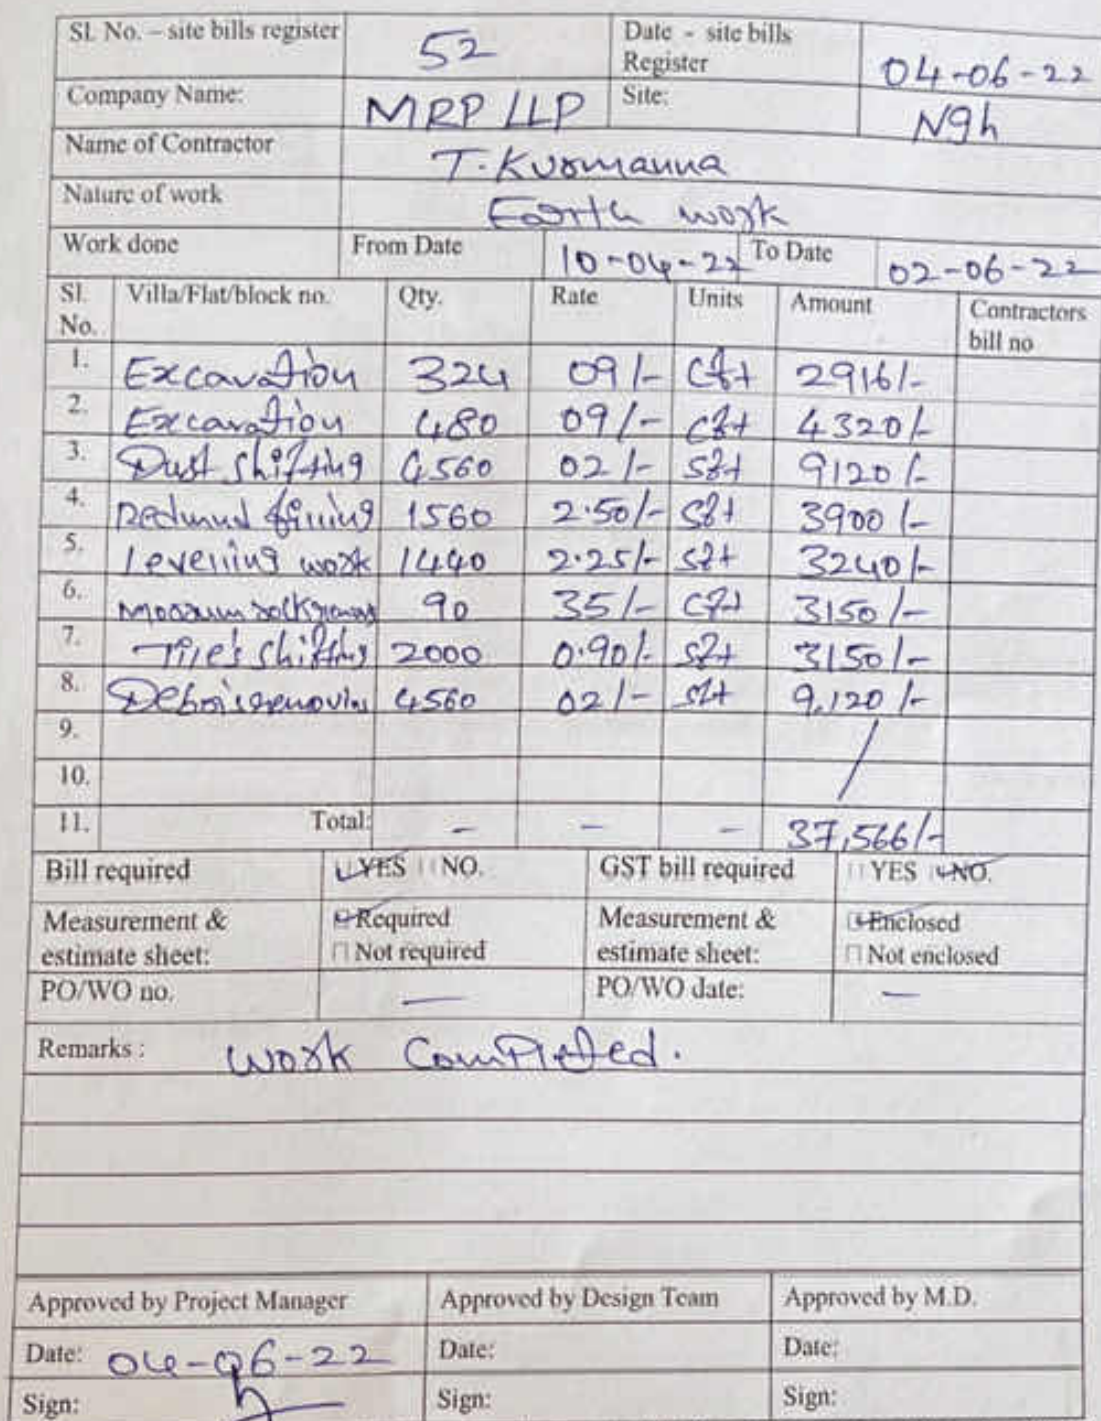 Sl. No. – site bills register 52 Date - site bills Register 04-06-22
Company Name: MRP LLP Site: Ngh
Name of Contractor T. Kuomanna
Nature of work Earth work
Work done From Date 10-04-22 To Date 02-06-22
Sl. No. Villa/Flat/block no. Qty. Rate Units Amount Contractors bill no
1. Excavation 324 09/- cft 2916/-
2. Excavation 480 09/- cft 4320/-
3. Dust shifting 4560 02/- sft 9120/-
4. filling 1560 2.50/- sft 3900/-
5. levelling work 1440 2.25/- sft 3240/-
6. 90 35/- cft 3150/-
7. Tile's shifting 2000 0.90/- sft 3150/-
8. Debris removing 4560 02/- sft 9,120/-
9.
10.
11. Total: - - - 37,566/-
Bill required YES NO. GST bill required YES NO.
Measurement & estimate sheet: Required Not required Measurement & estimate sheet: Enclosed Not enclosed
PO/WO no. — PO/WO date: —
Remarks : work Completed.
Approved by Project Manager Approved by Design Team Approved by M.D.
Date: 04-06-22 Date: Date:
Sign: Sign: Sign: